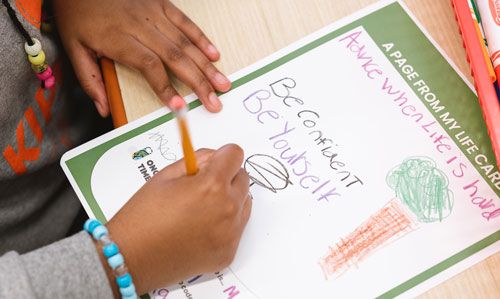 A PAGE FROM MY LIFE CARE
Advice when Life is hard
Be Confident
Be Yourself
ON
TIME
KI